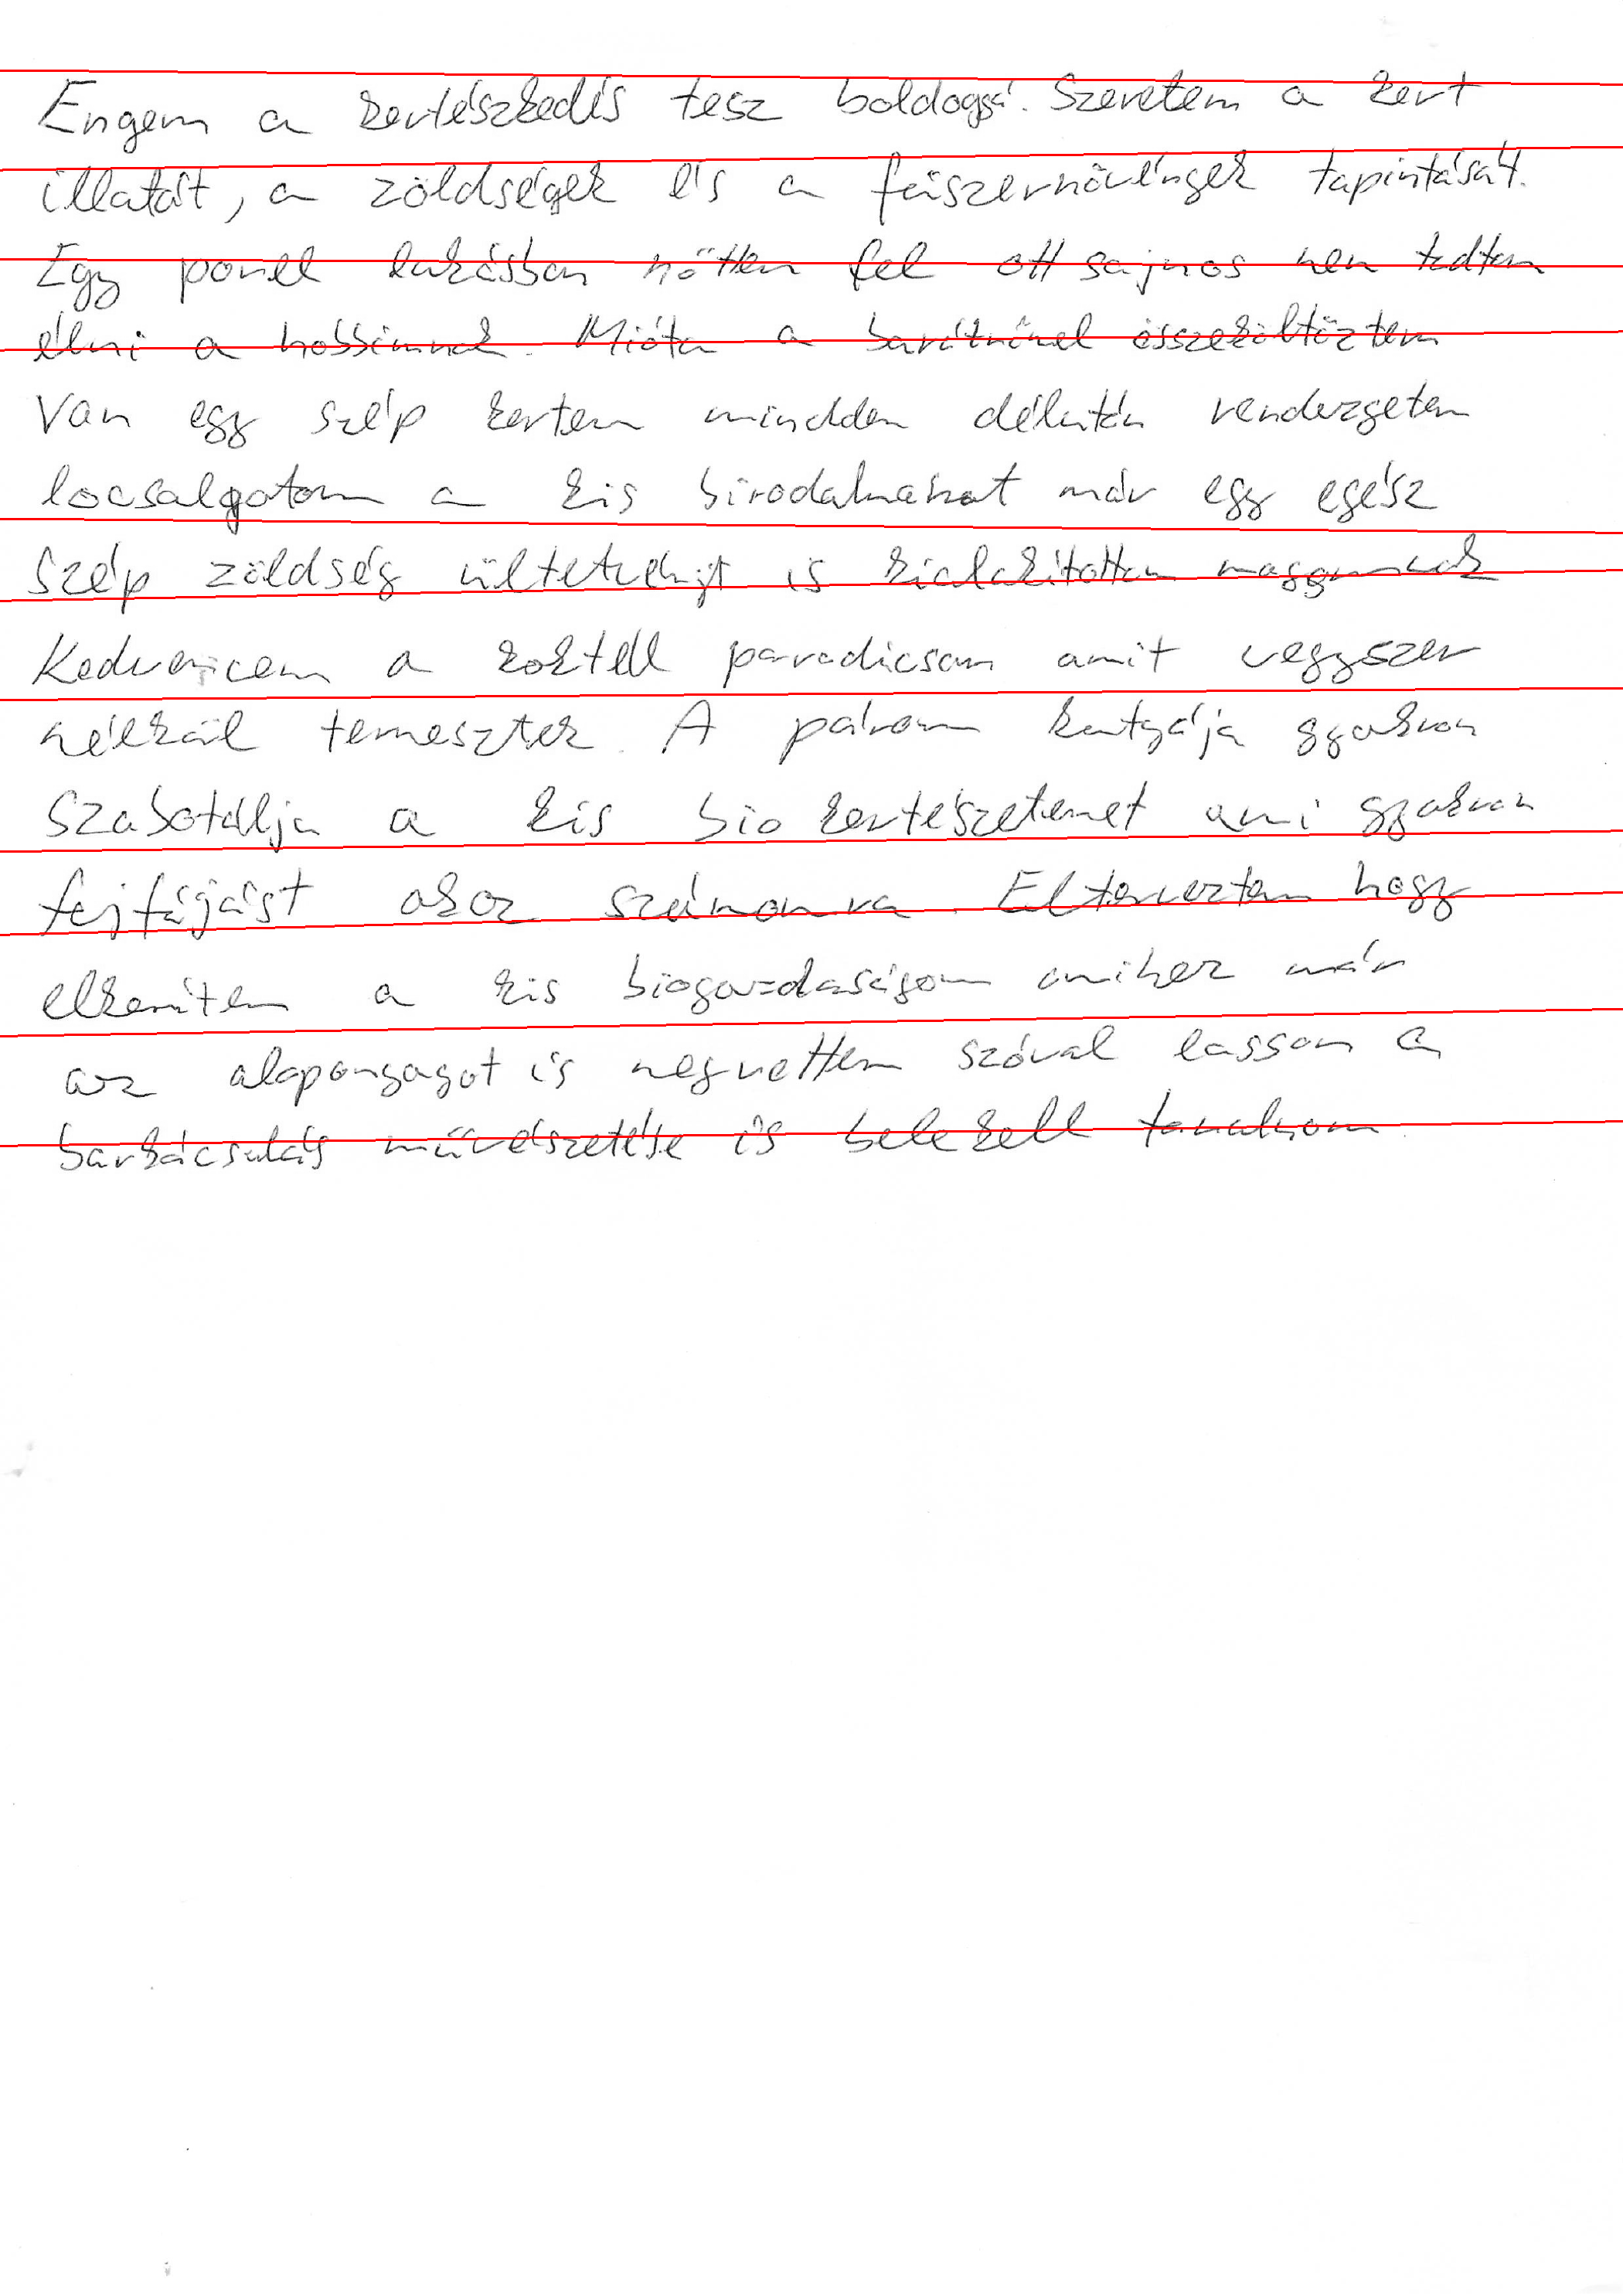 Engem a kertészkedés tesz boldoggá. Szeretem a kert
illatát, a zöldségek és a fűszernövények tapintását.
Egy panel lakásban nőttem fel ott sajnos nem tudtam
élni a hobbimnak. Mióta a barátnőmel összeköltöztem
Van egy szép kertem mindden délután rendezgetem
locsolgatom a kis birodalmamat már egy egész
szép zöldség ültetvényt is kialakítottam magamnak
Kedvencem a koktél paradicsom amit vegyszer
nélkül termesztek. A párom kutyája gyakran
szabotálja a kis bio kertészetemet ami gyakran
fejfájást okoz számomra. Elterveztem hogy
elkerítem a kis biogazdaságom amihez már
az alapanyagot is megvettem szóval lassan a
barkácsolás művészetébe is bele kell tanulnom.